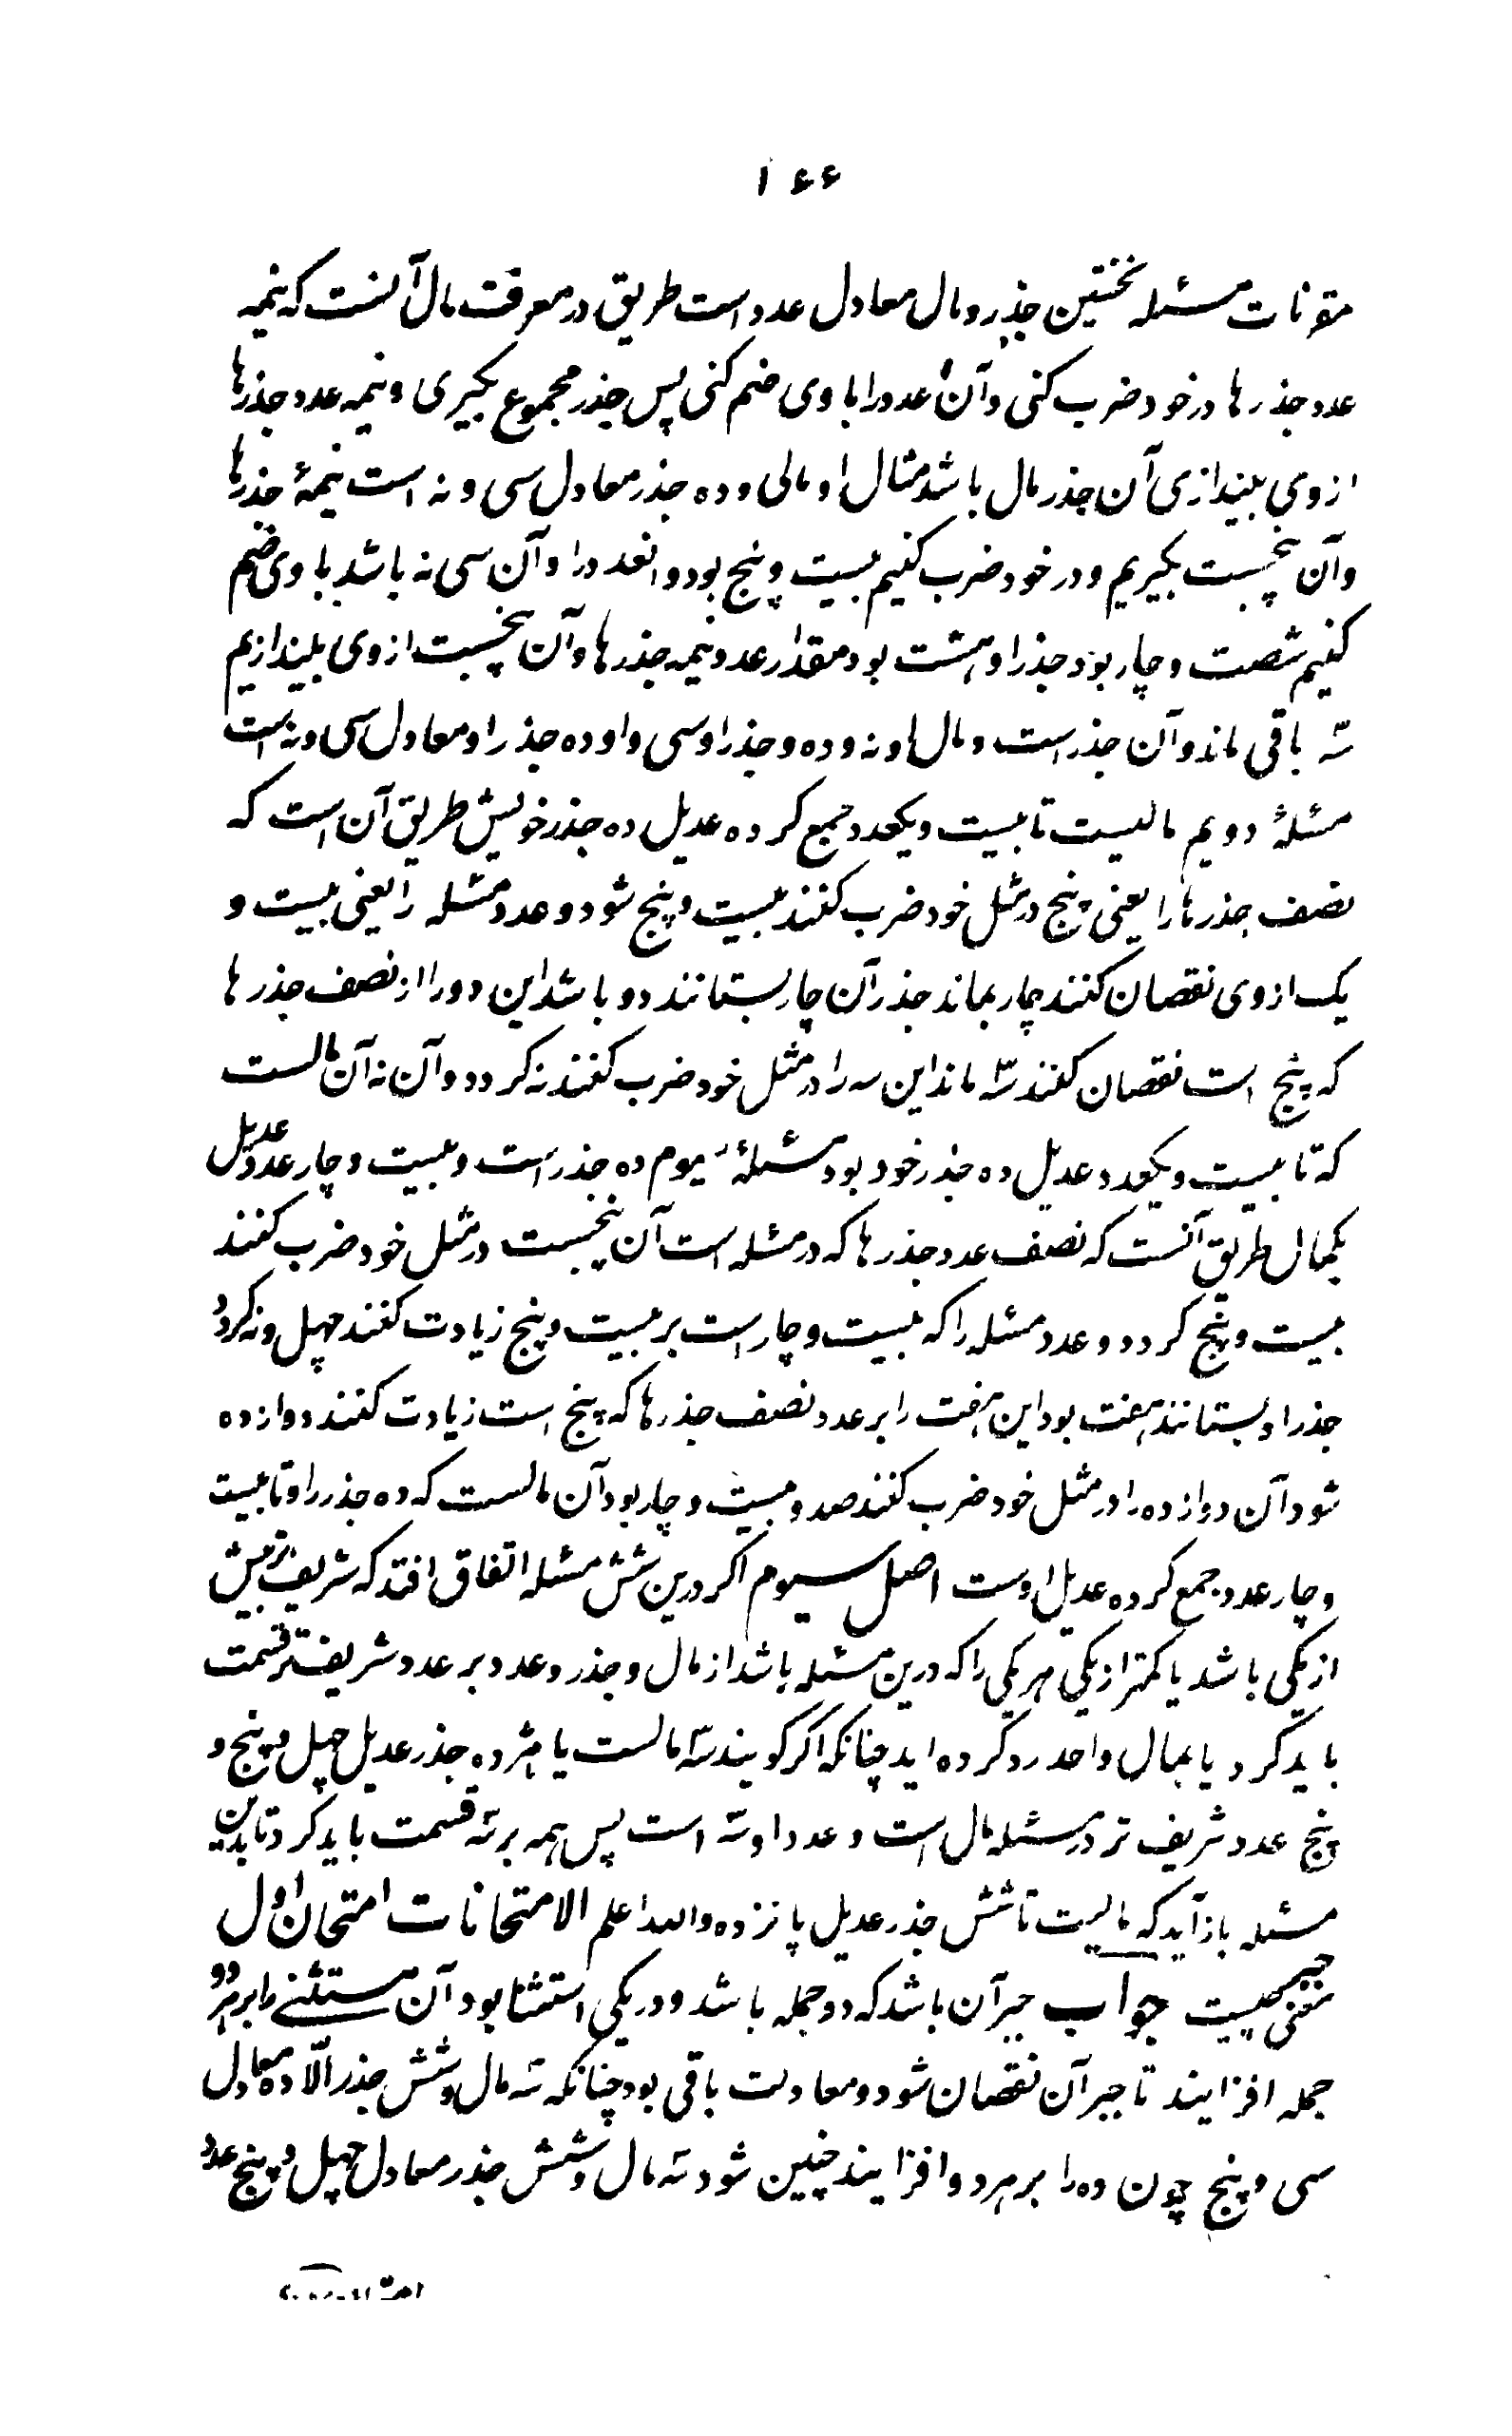 ۱۶۶
مقرنات مسئله نخستین جذر و مال معادل عدد است طریق در معرفت مال آنست که نیمه
عدد جذرها در خود ضرب کنی و آن عدد را با وی ضم کنی پس جذر مجموع بگیری و نیمه عدد جذرها
از وی بیندازی آن جذر مال باشد مثال او مالی و ده جذر معادل سی و نه است نیمۀ جذرها
و آن پنجست بگیریم و در خود ضرب کنیم بیست و پنج بود و انعدد را و آن سی نه باشد با وی ضم
کنیم شصت و چار بود جذر او هشت بود مقدار عدد نیمه جذرها و آن پنجست از وی بیندازیم
سه باقی ماند و آن جذر است و مال او نه و ده و جذر او سی و او ده جذر او معادل سی و نه است
مسئلۀ دویم مالیست تا بیست و یکعدد جمع کرده عدیل ده جذر خویش طریق آن است که
نصف جذرها را یعنی پنج در مثل خود ضرب کنند بیست و پنج شود و عدد مسئله را یعنی بیست و
یک از وی نقصان کنند چار بماند جذر آن چار بستانند دو باشد این دو را از نصف جذرها
که پنج است نقصان کنند سه ماند این سه را در مثل خود ضرب کنند نه گردد و آن نه آن مالست
که تا بیست و یکعدد عدیل ده جذر خود بود مسئلۀ سیوم ده جذر است و بیست و چار عدد عدیل
یکمال طریق آنست که نصف عدد جذرها که در مسئله است آن پنجست در مثل خود ضرب کنند
بیست و پنج گردد و عدد مسئله را که بیست و چار است بر بیست و پنج زیادت کنند چهل و نه گردد
جذر او بستانند هفت بود این هفت را بر عدد نصف جذرها که پنج است زیادت کنند دوازده
شود آن دوازده را در مثل خود ضرب کنند صد و بیست و چار بود آن مالست که ده جذر را و تا بیست
و چار عدد جمع کرده عدیل اوست اصل سیوم اگر درین شش مسئله اتفاق افتد که شریف تر بیش
از یکی باشد یا کمتر از یکی هر یکی را که درین مسئله باشد از مال و جذر و عدد بر عدد شریفتر قسمت
باید کرد یا بمال واحد رد کرده اید چنانکه اگر گویند سه مالست یا هژده جذر عدیل چهل و پنج و
پنج عدد شریف تر در مسئله مال است و عدد او سه است پس همه بر سه قسمت باید کرد تا بدین
مسئله باز آید که مالیست تا شش جذر عدیل پانزده والله اعلم الامتحانات امتحان اول
معنی جبر چیست جواب جبر آن باشد که دو جمله باشد و در یکی استثنا بود آن مستثنی را بر هر دو
جمله افزایند تا جبر آن نقصان شود و معادلت باقی بود چنانکه سه مال و شش جذر الّا ده معادل
سی و پنج چون ده را بر هر دو افزایند چنین شود سه مال و شش جذر معادل چهل و پنج عدد